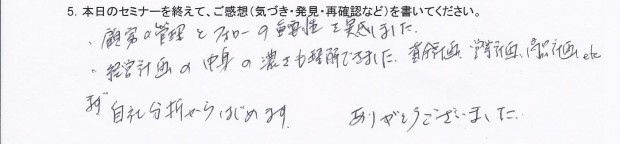 5. 本日のセミナーを終えて、ご感想(気づき・発見・再確認など)を書いてください。
・顧客の管理とフォローの重要性を実感しました。
・経営計画の中身の濃さも理解できました。資金計画、営業計画、商品計画etc
まず自社分析からはじめます。 ありがとうございました。